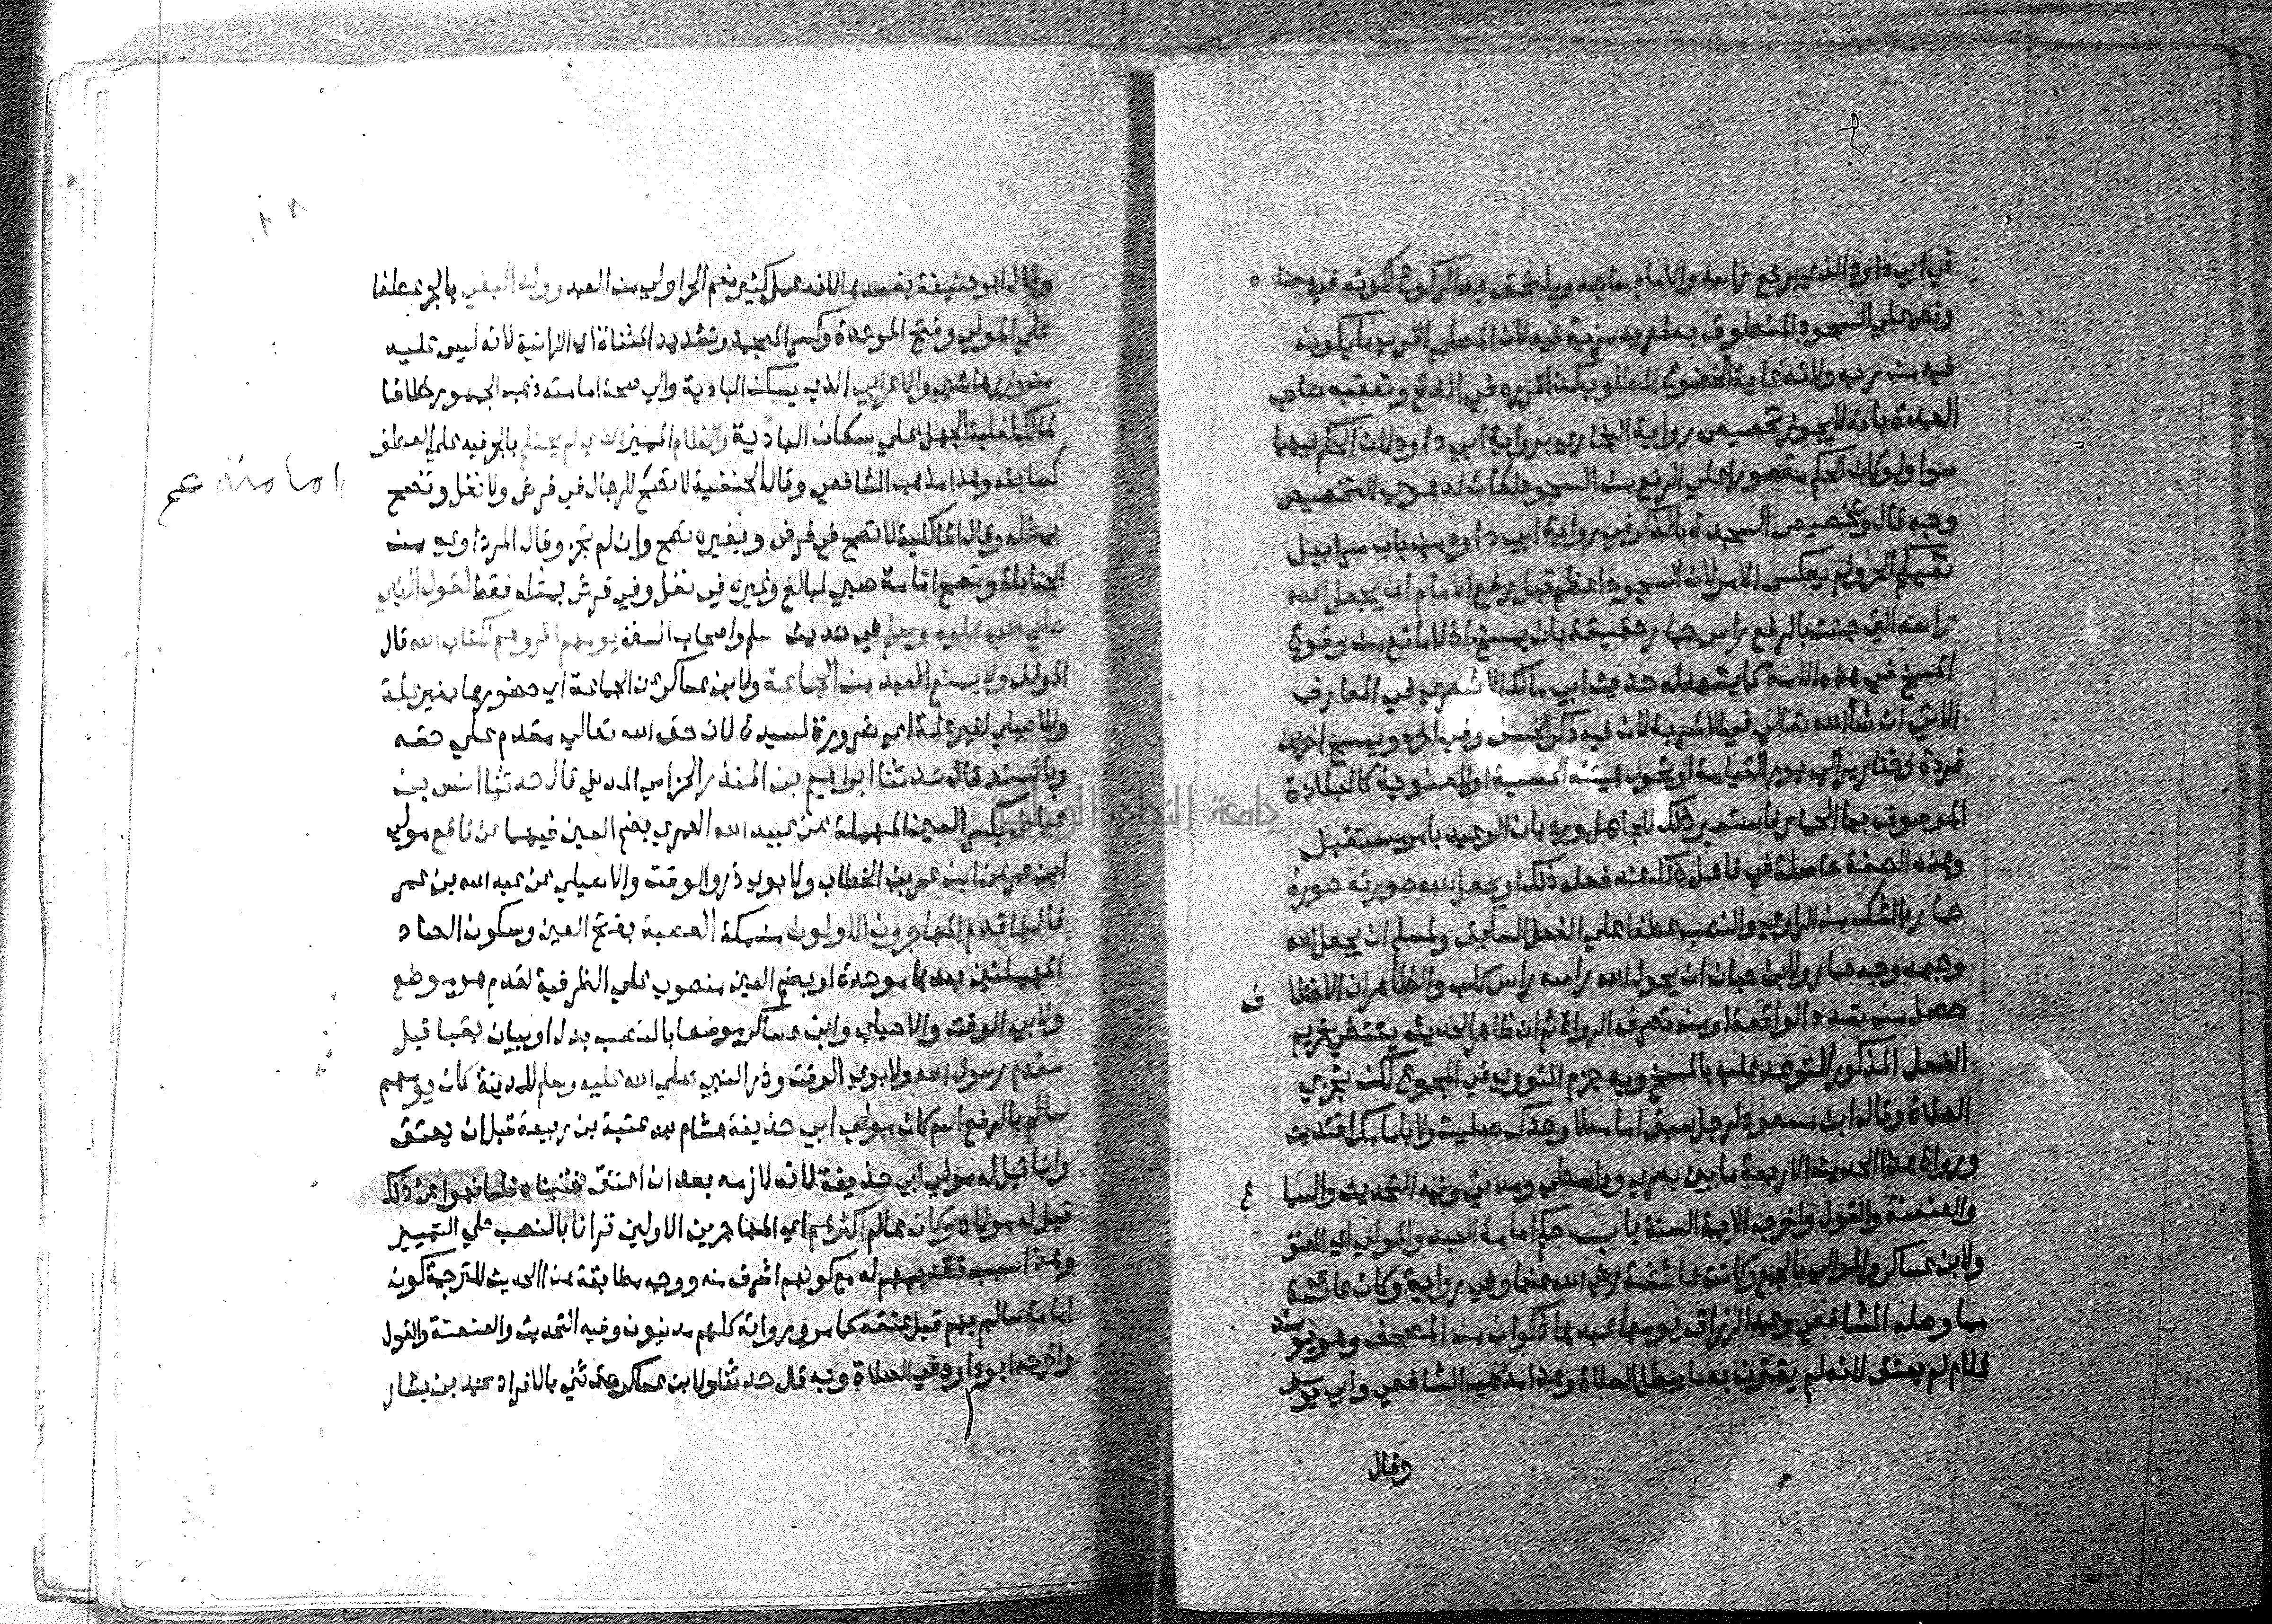 في ابي داود الذي يرفع راسه والامام ساجد ويلتحق به الركوع لكونه في معنا ه
ونص علي السجود المنطوق به لمزيد مزية فيه لان المصلي اقرب ما يكون
فيه من ربه ولانه غاية الخضوع المطلوب كذا قرره في الفتح وتعقبه صاحب
العمدة بانه لا يجوز تخصيص رواية البخاري برواية ابي داود لان الحكم فيهما
سوا ولو كان الحكم مقصورا علي الرفع من السجود لكان لدعوي التخصيص
وجه قال وتخصيص السجدة بالذكر في رواية ابي داود من باب سرابيل
تقيكم الحر ولم يعكس الامر لان السجود اعظم قبل رفع الامام ان يجعل الله
راسه التي جنت بالرفع راس حمار حقيقة بان يمسخ اذ لا مانع من وقوع
المسخ في هذه الامة كما يشهد له حديث ابي مالك الاشعري في المعازف
الاتي ان شا الله تعالي في الاشربة لان فيه ذكر الخسف وفي اخره ويمسخ اخرين
قردة وخنازير الي يوم القيامة او يحول هيئته الحسية او المعنوية كالبلادة
الموصوف بها الحمار فاستعير ذلك للجاهل ورد بان الوعيد بامر مستقبل
وهذه الصفة حاصلة في فاعل ذلك عند فعله ذلك او يجعل الله صورته صورة
حمار بالشك من الراوي والنصب عطفا علي الفعل السابق ولمسلم ان يجعل الله
وجهه وجه حمار ولابن حبان ان يحول الله راسه راس كلب والظاهر ان الاختلا ف
حصل من تعدد الواقعة او من تصرف الرواة ثم ان ظاهر الحديث يقتضي تحريم
الفعل المذكور للتوعد عليه بالمسخ وبه جزم النووي في المجموع لكن تجزي
الصلاة وقال ابن مسعود لرجل سبق امامه لا وحدك صليت ولا بامامك اقتديت
ورواة هذا الحديث الاربعة ما بين بصري وواسطي ومدني وفيه التحديث والسما ع
والعنعنة والقول واخرجه الايمة الستة باب حكم امامة العبد والمولي اي المعتق
ولابن عساكر والموالي بالجمع وكانت عائشة رضي الله عنها وفي رواية وكان عائشة
مما وصله الشافعي وعبد الرزاق يومها عبدها ذكوان من المصحف وهو يومئذ
غلام لم يعتق لانه لم يقترن به ما يبطل الصلاة وهذا مذهب الشافعي وابي يوسف
وقال
وقال ابو حنيفة يفسدها لانه عمل كثير نعم الراوي من العبد وولد البغي بالجر عطفا
علي المولي وفتح الموحدة وكسر المعجمة وتشديد المثناة اي الزانية لانه ليس عليه
من وزرها شي والاعرابي الذي يسكن البادية والي صحة امامته ذهب الجمهور خلافا
لمالك لغلبة الجهل علي سكان البادية والغلام المميز الذي لم يحتلم بالجر فيه علي العطف
كسابقه وهذا مذهب الشافعي وقال الحنفية لا تصح للرجال في فرض ولا نفل وتصح
امامته عم
بمثله وقال المالكية لا تصح في فرض وبغيره تصح وان لم تجز وقال المرداوي من
الحنابلة وتصح امامة صبي لبالغ وغيره في نفل وفي فرض بمثله فقط لقول النبي
صلي الله عليه وسلم في حديث مسلم واصحاب السنن يومهم اقروهم لكتاب الله قال
المولف ولا يمنع العبد من الجماعة ولابن عساكر عن الجماعة اي حضورها بغير علة
وللاصيلي لغير علة اي ضرورة لسيده لان حق الله تعالي مقدم علي حقه
وبالسند قال حدثنا ابراهيم بن المنذر الحزامي المدني قال حدثنا انس بن
عياض بكسر العين المهملة عن عبيد الله العمري بضم العين فيهما عن نافع مولي
ابن عمر عن ابن عمر بن الخطاب ولابوي ذر والوقت والاصيلي عن عبد الله بن عمر
قال لما قدم المهاجرون الاولون من مكة العصبة بفتح العين وسكون الصاد
المهملتين بعدها موحدة او بضم العين منصوب علي الظرفية لقدم موضع
ولابي الوقت والاصيلي وابن عساكر موضعا بالنصب بدل او بيان بقبا قبل
مقدم رسول الله ولابوي الوقت وذر النبي صلي الله عليه وسلم المدينة كان يومهم
سالم بالرفع اسم كان مولي ابي حذيفة هشام بن عتبة بن ربيعة قبل ان يعتق
وانما قيل له مولي ابي حذيفة لانه لازمه بعد ان اعتق فتبناه فلما نهوا عن ذلك
قيل له مولاه وكان سالم اكثرهم اي المهاجرين الاولين قرانا بالنصب علي التمييز
وهذا سبب تقديمهم له مع كونهم اشرف منه ووجه مطابقة هذا الحديث للترجمة كون
امامة سالم بهم قبل عتقه كما مر ورواته كلهم مدنيون وفيه التحديث والعنعنة والقول
واخرجه ابو داود في الصلاة وبه قال حدثنا ولابن عساكر حدثني بالافراد محمد بن بشار
جامعة النجاح الوطنية